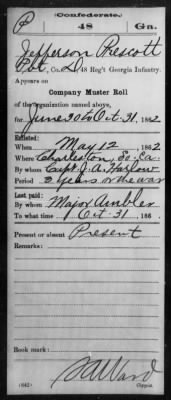 (Confederate.)
P 48 Ga.
Jefferson Prescott
Pvt, Co. , 48 Reg't Georgia Infantry.
Appears on
Company Muster Roll
of the organization named above,
for June 30 to Oct. 31, 1862
Enlisted:
When May 12 1862
Where Charleston, So. Ca.
By whom Capt. J. A. Harlow
Period 3 years or the war
Last paid:
By whom Major Ambler
To what time Oct 31, 186 .
Present or absent Present
Remarks:
Book mark:
(642) Ward
Copyist.